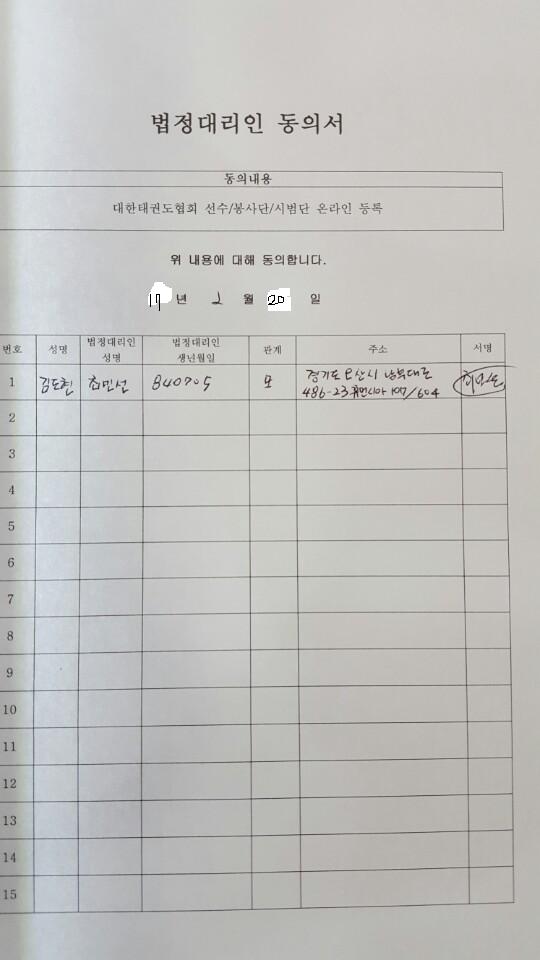 법정대리인 동의서
동의내용
대한태권도협회 선수/봉사단/시범단 온라인 등록
위 내용에 대해 동의합니다.
17 년 2 월 20 일
번호 성명 법정대리인 성명 법정대리인 생년월일 관계 주소 서명
1 김도현 최민선 840705 모 경기도 오산시 남부대로
486-23 휴먼시아 107/604
2
3
4
5
6
7
8
9
10
11
12
13
14
15